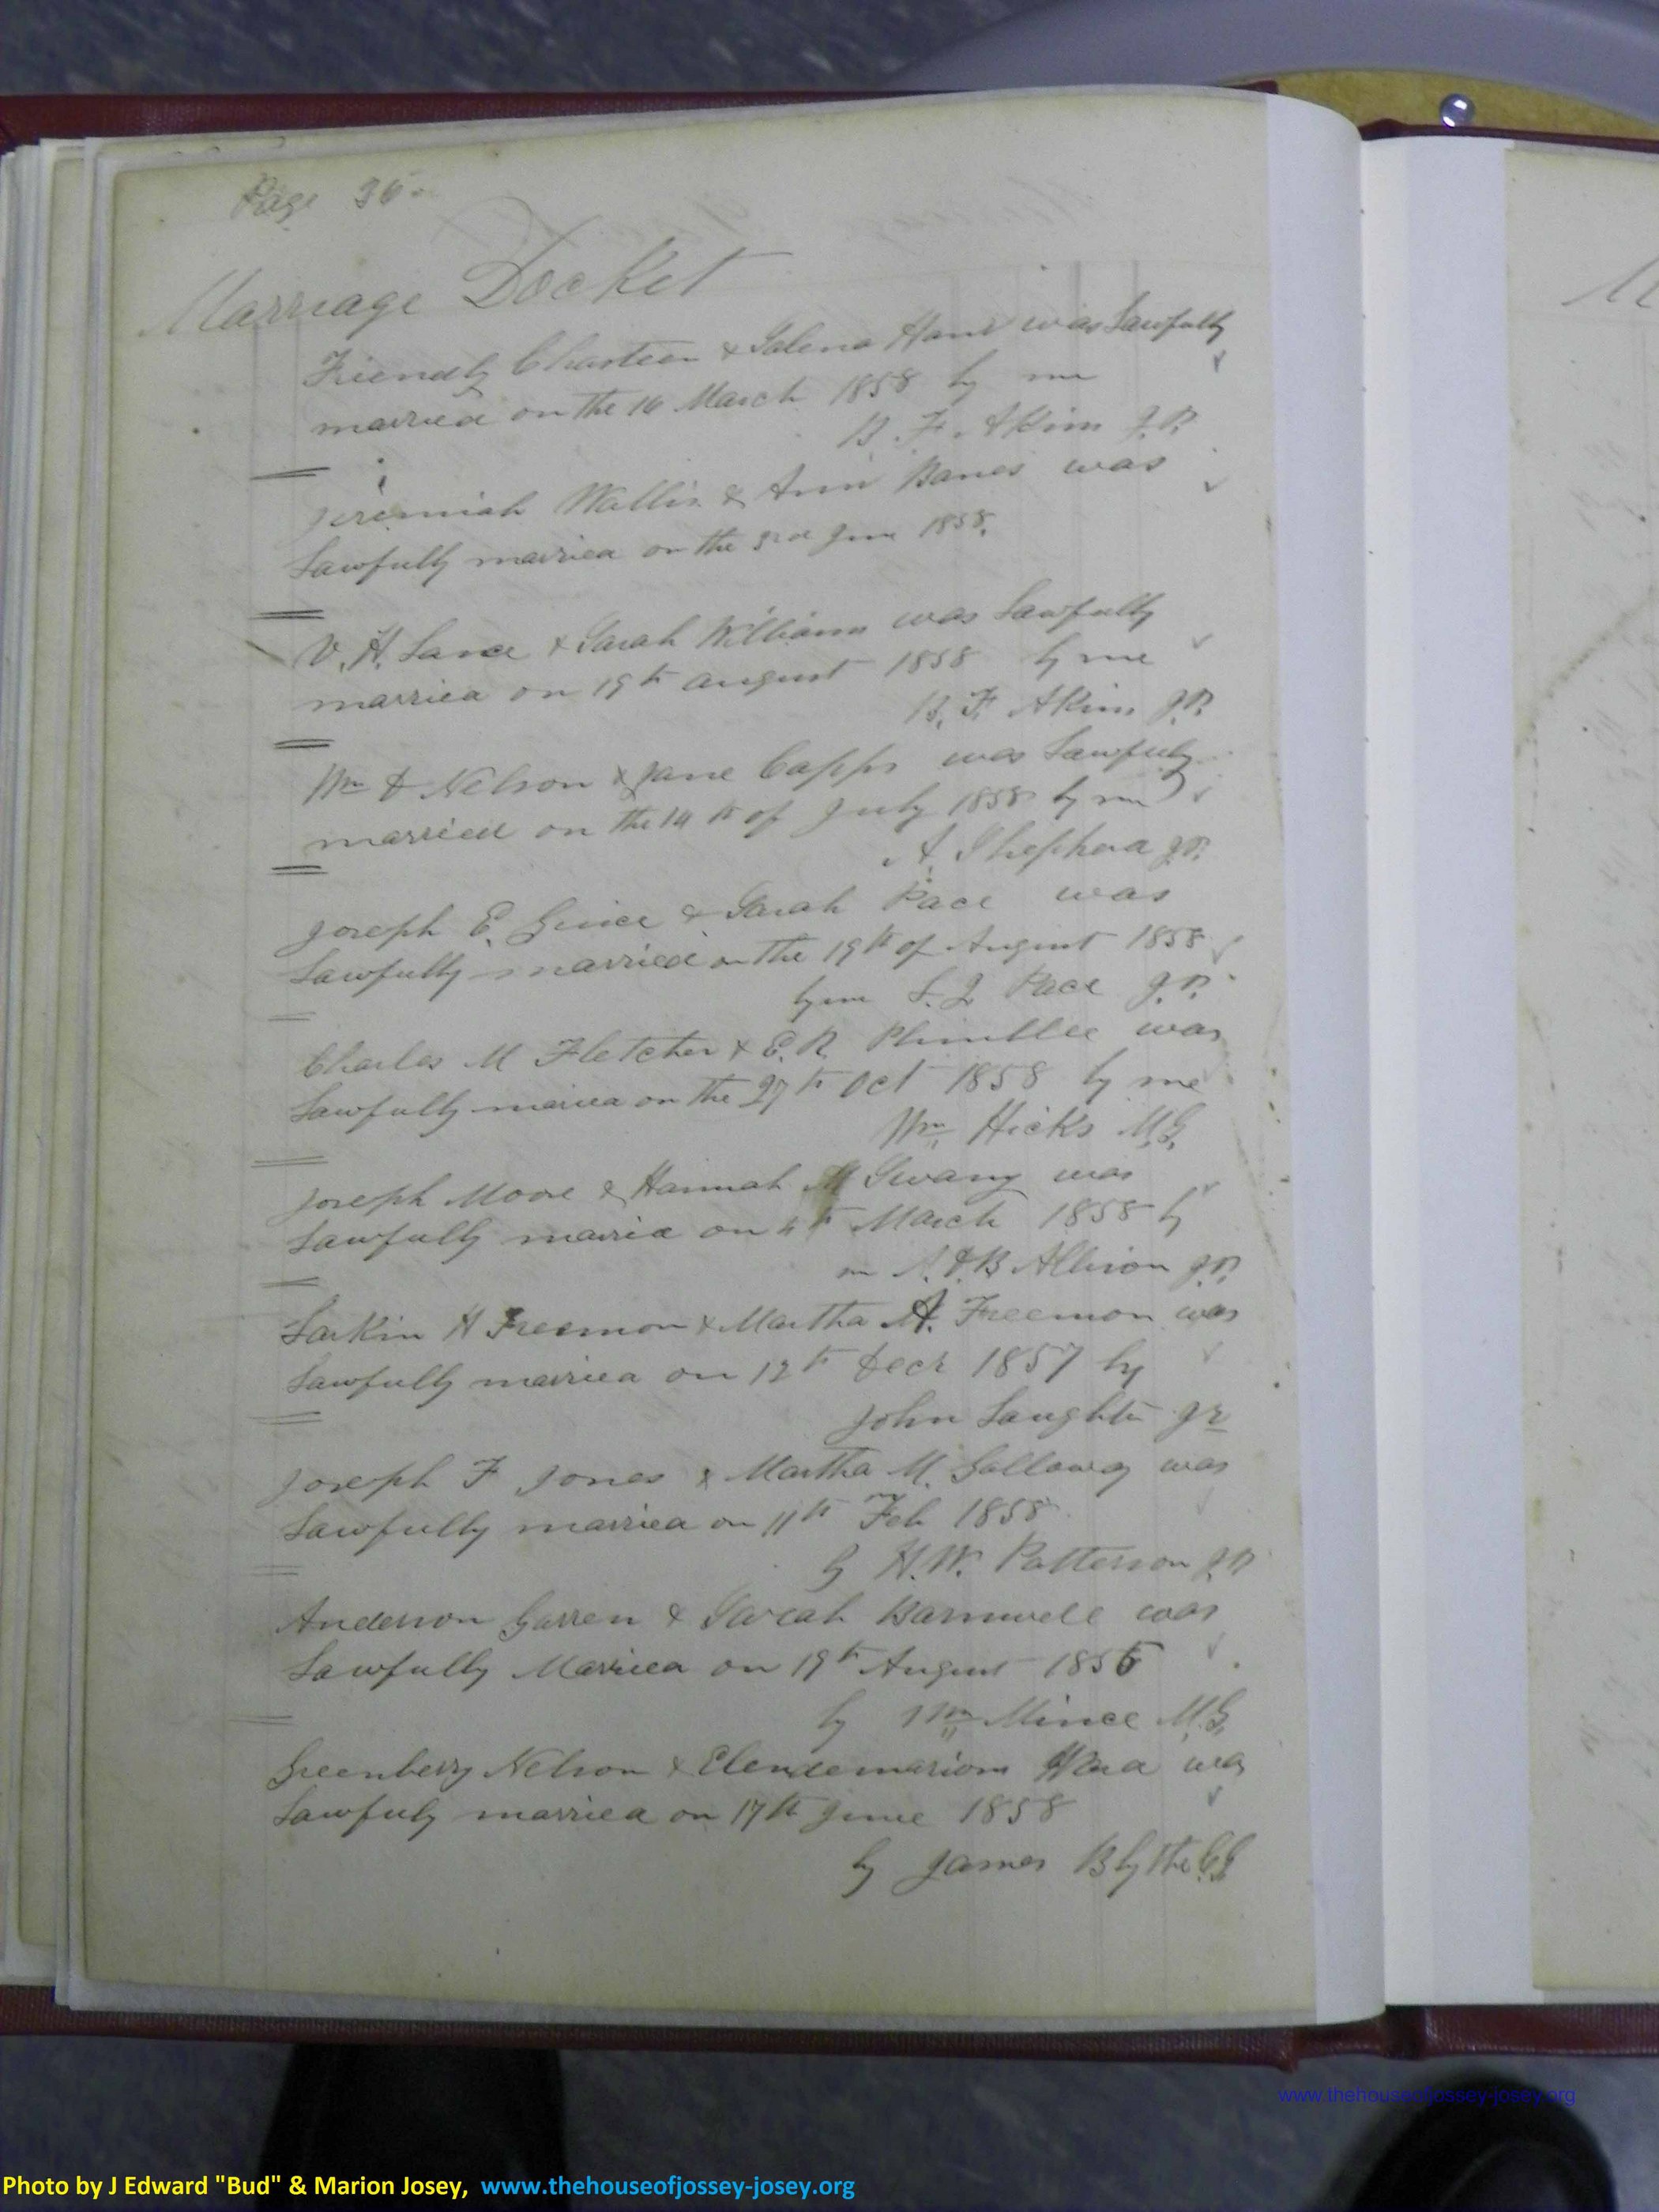 Page 36
Marriage Docket
Friendly Chasteen & Salena Hans was Lawfully
married on the 16 March 1858 by me
B. F. Akins J.P.
Jeremiah Wallis & Ann Banes was
Lawfully married on the 3rd June 1858.
V. H. Lance & Sarah Williams was Lawfully
married on 19th august 1858 by me
B. F. Akins J.P.
Wm D Nelson & Jane Capps was Lawfuly
married on the 14th of July 1858 by me
A. Shepherd J.P.
Joseph E. Guice & Sarah Pace was
Lawfully married on the 19th of August 1858
by me L. L Pace J.P.
Charles M Fletcher & E. R. Plumblee was
Lawfully maried on the 27th Oct 1858 by me
Wm Hicks M.G.
Joseph Moore & Hannah M Gwang was
Lawfully maried on 4th March 1858 by
me Allison J.P.
Larkin H Freemon & Martha A. Freemon was
Lawfully married on 12th Decr 1857 by
John Laughter
Joseph F Jones & Martha M. Galloway was
Lawfully married on 11th Feb 1858
by H. W. Patterson J.P.
Anderson Garren & Sarah Barnwell was
Lawfully Married on 19th August 1856
by Wm Mince M.G.
Greenberry Nelson & was
Lawfuly married on 17th June 1858
by James Blythe
www.thehouseofjossey-josey.org
Photo by J Edward "Bud" & Marion Josey, www.thehouseofjossey-josey.org